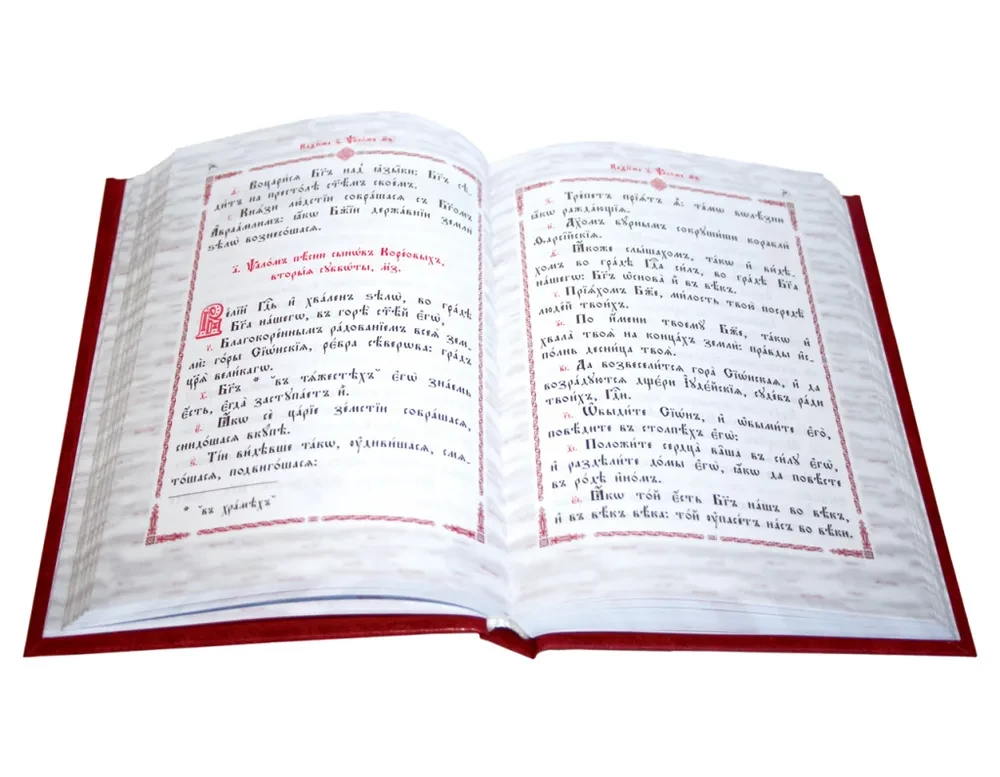 Каѳі́сма з҃. Ѱало́мъ
Воцари́сѧ Бг҃ъ над̾ ѩ҆зы̑ки: Бг҃ъ сѣ-
ди́тъ на престо́лѣ ст҃ѣ́мъ свое́мъ.
Кнѧ̑зи лю́дстїи собра́шасѧ съ Бг҃омъ
А҆враа́млимъ: ѩ҆́кѡ Бж҃їи держа́внїи землѝ
ѕѣлѡ̀ вознесо́шасѧ.
Ѱало́мъ пѣ́сни сынѡ́въ Коре́овыхъ,
вторы́ѧ сꙋббѡ́ты, м҃з.
Ве́лїй Гд҇ь и҆ хва́ленъ ѕѣлѡ̀, во гра́дѣ
Бг҃а на́шегѡ, въ горѣ̀ ст҃ѣ́й є҆гѡ̀,
г҃. Благокоре́ннымъ ра́дованїемъ всеѧ̀ зем-
лѝ: го́ры Сїѡ́нскїѧ, ре́бра сѣ́верѡва: гра́дъ
цр҃ѧ̀ вели́кагѡ.
Бг҃ъ * ̏въ тѧ́жестехъ̏ є҆гѡ̀ зна́емь
є҆́сть, є҆гда̀ застꙋпа́етъ и҆̀.
Ѩ҆́кѡ сѐ ца́рїе зе́мстїи собра́шасѧ,
снидо́шасѧ вкꙋ́пѣ.
Ті́и ви́дѣвше та́кѡ, ᲂу҆диви́шасѧ, смѧ-
то́шасѧ, подвиго́шасѧ:
* ̏въ хра́мѣхъ̏
Каѳі́сма з҃. Ѱало́мъ
Тре́петъ прїѧ́тъ ѧ҆̀: та́мѡ бѡлѣ́зни
ѩ҆́кѡ ражда́ющїѧ.
Дх҃омъ бꙋ́рнымъ сокрꙋши́ши корабли̑
Ѳарсі̑йскїѧ.
Ѩ҆́коже слы́шахомъ, та́кѡ и҆ ви́дѣ-
хомъ во гра́дѣ Гд҇а си́лъ, во гра́дѣ Бг҃а
на́шегѡ: Бг҃ъ ѡ҆снова̀ и҆̀ въ вѣ́къ.
Прїѧ́хомъ Бж҃е, ми́лость твою̀ посредѣ̀
люде́й твои́хъ.
По и҆́мени твоемꙋ̀ Бж҃е, та́кѡ и҆
хвала̀ твоѧ̀ на конца́хъ землѝ: пра́вды и҆с-
по́лнь десни́ца твоѧ̀.
Да возвесели́тсѧ гора̀ Сїѡ́нскаѧ, и҆ да
возра́дꙋютсѧ дщє́ри І҆ꙋдє́йскїѧ, сꙋде́бъ ра́ди
твои́хъ, Гд҇и.
Ѡ҆быди́те Сїѡ́нъ, и҆ ѡ҆быми́те є҆го̀,
повѣ́дите въ столпѣ́хъ є҆гѡ̀:
Положи́те сердца̀ ва̑ша въ си́лꙋ є҆гѡ̀,
и҆ раздѣли́те до́мы є҆гѡ̀, ѩ҆́кѡ да повѣ́сте
въ ро́дѣ и҆́номъ.
Ѩ҆́кѡ то́й є҆́сть Бг҃ъ на́шъ во вѣ́къ,
и҆ въ вѣ́къ вѣ́ка: то́й ᲂу҆пасе́тъ на́съ во вѣ́ки.